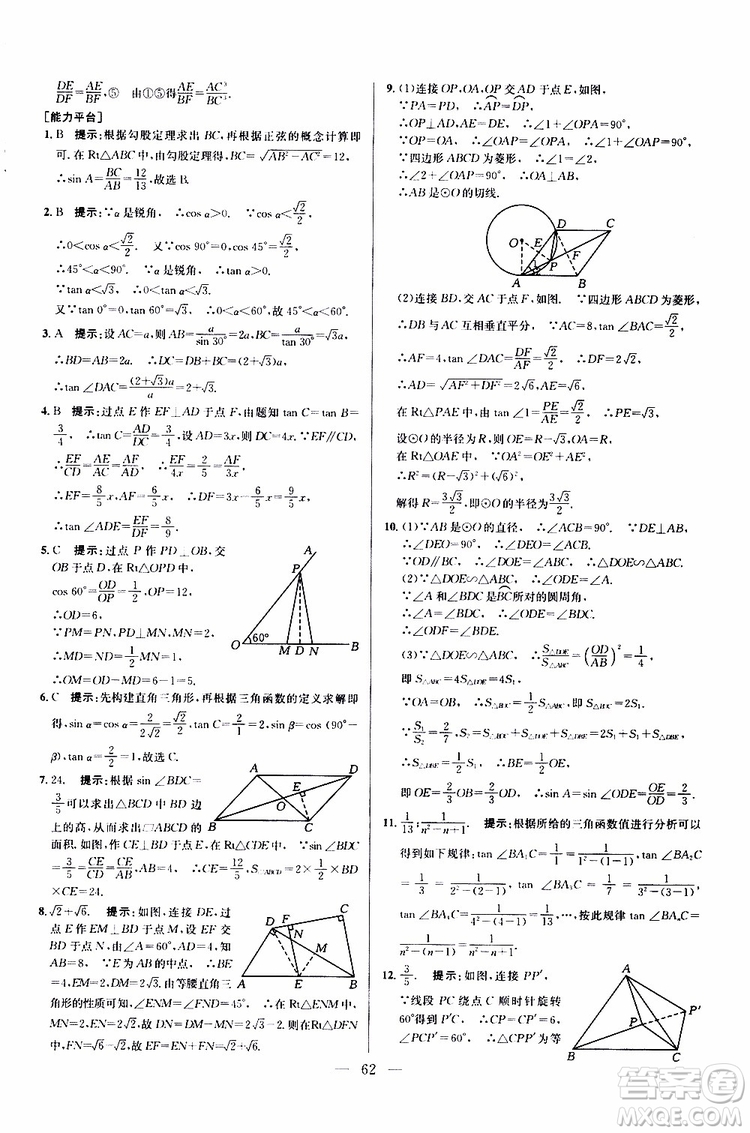 DE/DF=AE/BF,⑤ 由①⑤得AE/BF=AC³/BC³.
[能力平台]
1. B 提示:根据勾股定理求出 BC,再根据正弦的概念计算即
可.在 Rt△ABC 中,由勾股定理得,BC=√(AB²-AC²)=12,
∴sin A=BC/AB=12/13,故选 B.
2. B 提示:∵α是锐角,∴cos α>0. ∵cos α<√2/2,
∴0<cos α<√2/2. 又∵cos 90°=0,cos 45°=√2/2,
∴45°<α<90°. ∵α是锐角,∴tan α>0. ∵tan α<√3,∴0<
tan α<√3.
又∵tan 0°=0,tan 60°=√3,∴0<α<60°,故 45°<α<60°.
3. A 提示:设 AC=a,则 AB=a/sin 30°=2a,BC=a/tan 30°=√3a,
∴BD=AB=2a. ∴DC=BD+BC=(2+√3)a,
∴tan∠DAC=(2+√3)a/a=2+√3.
4. B 提示:过点 E 作 EF⊥AD 于点 F,由题知 tan C=tan B=
3/4,∴tan C=AD/DC=3/4,设 AD=3x,则 DC=4x. ∵EF∥CD,
∴EF/CD=AE/AC=AF/AD,∴EF/4x=2/5=AF/3x,
∴EF=8/5x,AF=6/5x,∴DF=3x-6/5x=9/5x,
∴tan∠ADE=EF/DF=8/9.
5. C 提示:过点 P 作 PD⊥OB,交
OB 于点 D,在 Rt△OPD 中,
cos 60°=OD/OP=1/2,OP=12,
∴OD=6,
∵PM=PN,PD⊥MN,MN=2,
∴MD=ND=1/2MN=1,
∴OM=OD-MD=6-1=5.
O 60° M D N B P A
6. C 提示:先构建直角三角形,再根据三角函数的定义求解即
得,sin α=2/(2√2)=√2/2,tan C=2/1=2,sin β=cos(90°-
β),tan α=2/2=1,故选 C.
7. 24. 提示:根据 sin∠BDC=
3/5可以求出△BCD 中 BD 边
上的高,从而求出▱ABCD 的
面积.如作 CE⊥BD 于点 E,在 Rt△CDE 中,∵sin∠BDC
=3/5=CE/CD=CE/AB,AB=4,∴CE=12/5,S▱ABCD=2×1/2×BD×
CE=24.
A D E O B C
8. √2+√6. 提示:如图,连接 DE,过
点 E 作 EM⊥BD 于点 M,设 EF 交
BD 于 N. ∵AD=BD,AB=4,∴∠A=
45°. ∵E 为 AB 的中点,∴DE⊥
AB,EM=2,DM=2,由等腰直角三
角形的性质可知,∠MNE=∠FND=45°,∴在 Rt△EMN 中,
MN=2,∴DN=√6-√2. ∵∠FND=45°,∴在 Rt△DFN 中,
FN=√6-√2,∴EF=√2+√6.
D F N C M A E B
9. (1)连接 OP,OA,OP 交 AD 于点 E,如图.
∵PA=PD,∴AP=DP.
∴OP⊥AD,AE=DE,∴∠1+∠OPA=90°.
∵OP=OA,∴∠OAP=∠OPA,∴∠1+∠OAP=90°.
∵四边形 ABCD 为菱形,∴∠1=∠2.
∴∠2+∠OAP=90°. ∴OA⊥AB,
∴AB 是⊙O 的切线.
D C O E P F A B 1 2
(2)连接 BD,交 AC 于点 F,如图. ∵四边形 ABCD 为菱形,
∴DB 与 AC 互相垂直平分. ∵AC=8,tan∠BAC=√2/2,
∴AF=4,tan∠DAC=DF/AF=√2/2. ∴DF=2√2.
∴AD=√(AF²+DF²)=2√6,AE=√6.
在 Rt△PAE 中,tan∠1=PE/AE=√2/2,∴PE=√3.
设⊙O 的半径为 R,则 OE=R-√3,OA=R.
在 Rt△OAE 中,∵OA²=OE²+AE²,
∴R²=(R-√3)²+(√6)²,
解得 R=3√3/2,即⊙O 的半径为3√3/2.
10. (1)∵AB 是⊙O 的直径,∴∠ACB=90°. ∵DE⊥AB,
∴∠DEO=90°. ∴∠DEO=∠ACB.
∵OD∥BC,∴∠DOE=∠ABC. ∴△DOE∽△ABC.
(2)∵△DOE∽△ABC,∴∠ODE=∠A.
∵∠A 和∠BDC 是BC所对的圆周角,
∴∠A=∠BDC,∴∠ODE=∠BDC.
∴∠ODF=∠BDE.
(3)∵△DOE∽△ABC,∴S△DOE/S△ABC=(OD/AB)²=1/4,
即 S△ABC=4S△DOE=4S₁,
∵OA=OB,∴S△BOC=1/2S△ABC,即 S△BOC=2S₁.
∵S₁/S₂=2/7,S₂=S△BOC+S△DOE+S△DBE=2S₁+S₁+S△DBE,
∴S△DBE=1/2S₁,∴BE=1/2OE,
即 OE=2/3OB=2/3OD,∴sin A=sin∠ODE=OE/OD=2/3.
11. 1/13;1/(n²-n+1). 提示:根据所给的三角函数值进行分析可以
得到如下规律:tan∠BA₁C=1/(1²-(1-1)),tan∠BA₂C
=1/(2²-(2-1)),tan∠BA₃C=1/(3²-(3-1)),
tan∠BA₄C=1/(4²-(4-1))=1/13,…,按此规律 tan∠BAₙC=
1/(n²-(n-1))=1/(n²-n+1).
12. 3/5. 提示:如图,连接 PP′,
∵线段 PC 绕点 C 顺时针旋转
60°得到 P′C,∴CP=CP′=6,
∠PCP′=60°,∴△CPP′为等
A P P′ B C
— 62 —
答案圈
MXQE.COM